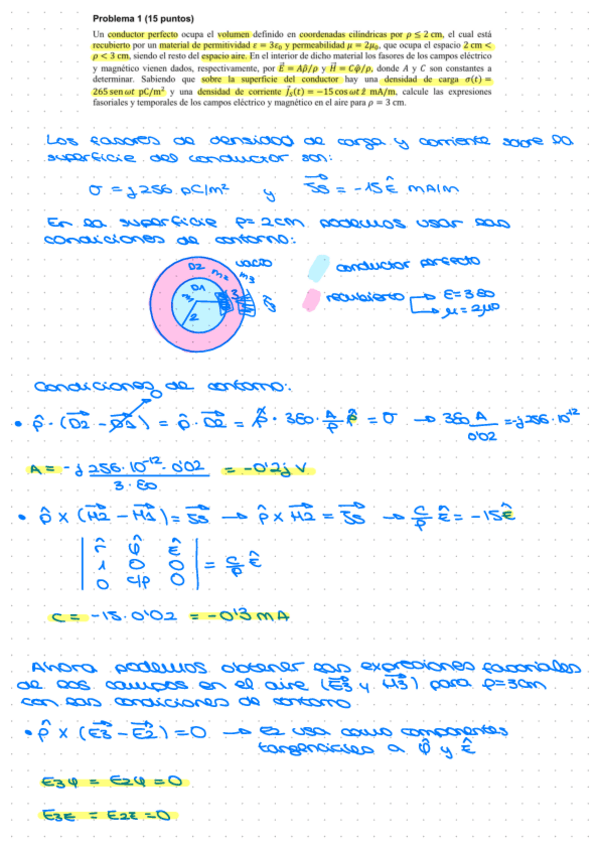 Problema 1 (15 puntos)
Un conductor perfecto ocupa el volumen definido en coordenadas cilíndricas por ρ ≤ 2 cm, el cual está
recubierto por un material de permitividad ε = 3ε₀ y permeabilidad μ = 2μ₀, que ocupa el espacio 2 cm <
ρ < 3 cm, siendo el resto del espacio aire. En el interior de dicho material los fasores de los campos eléctrico
y magnético vienen dados, respectivamente, por E⃗ = Aρ̂/ρ y H⃗ = Cφ̂/ρ, donde A y C son constantes a
determinar. Sabiendo que sobre la superficie del conductor hay una densidad de carga σ(t) =
265 sen ωt pC/m² y una densidad de corriente J⃗s(t) = −15 cos ωt ẑ mA/m, calcule las expresiones
fasoriales y temporales de los campos eléctrico y magnético en el aire para ρ = 3 cm.
Los fasores de densidad de carga y corriente sobre la
superficie del conductor son:
σ = j256 pC/m² y J⃗s = -15ẑ mA/m
En la superficie ρ=2cm podemos usar las
condiciones de contorno:
D2 vacío
m2 m3
D1
m1
2
3
conductor perfecto
recubierto → ε=3ε0
→ μ=2μ0
Condiciones de contorno:
0
• ρ̂ · (D⃗2 - D⃗1) = ρ̂ · D⃗2 = ρ̂ · 3ε0 · A/ρ ρ̂ = σ → 3ε0 A/0'02 = -j256·10⁻¹²
A = -j 256·10⁻¹²·0'02 / 3·ε0 = -0'2j V
• ρ̂ × (H⃗2 - H⃗1) = J⃗s → ρ̂ × H⃗2 = J⃗s → C/ρ ẑ = -15ẑ
| r̂ φ̂ ẑ |
| 1 0 0 | = C/ρ ẑ
| 0 C/ρ 0 |
C = -15·0'02 = -0'3 mA
Ahora podemos obtener las expresiones fasoriales
de los campos en el aire (E⃗3 y H⃗3) para ρ=3cm
con las condiciones de contorno
• ρ̂ × (E⃗3 - E⃗2) = 0 → E2 usa como componentes
tangenciales a φ̂ y ẑ
E3φ = E2φ = 0
E3z = E2z = 0